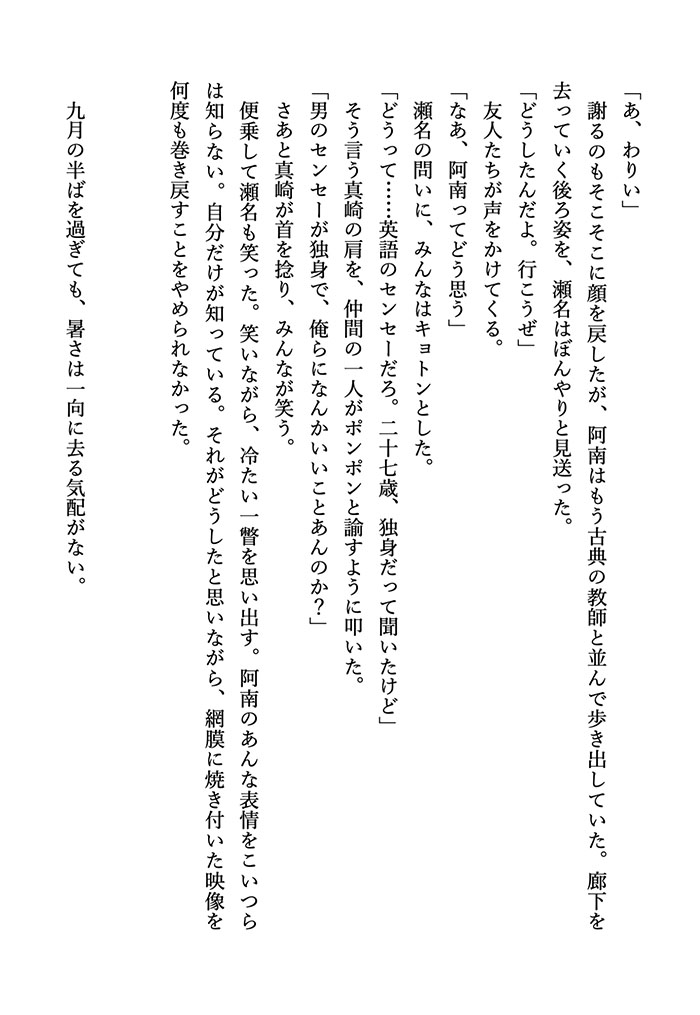 「あ、わりい」
謝るのもそこそこに顔を戻したが、阿南はもう古典の教師と並んで歩き出していた。廊下を
去っていく後ろ姿を、瀬名はぼんやりと見送った。
「どうしたんだよ。行こうぜ」
友人たちが声をかけてくる。
「なあ、阿南ってどう思う」
瀬名の問いに、みんなはキョトンとした。
「どうって……英語のセンセーだろ。二十七歳、独身だって聞いたけど」
そう言う真崎の肩を、仲間の一人がポンポンと諭すように叩いた。
「男のセンセーが独身で、俺らになんかいいことあんのか？」
さあと真崎が首を捻り、みんなが笑う。
便乗して瀬名も笑った。笑いながら、冷たい一瞥を思い出す。阿南のあんな表情をこいつら
は知らない。自分だけが知っている。それがどうしたと思いながら、網膜に焼き付いた映像を
何度も巻き戻すことをやめられなかった。
九月の半ばを過ぎても、暑さは一向に去る気配がない。